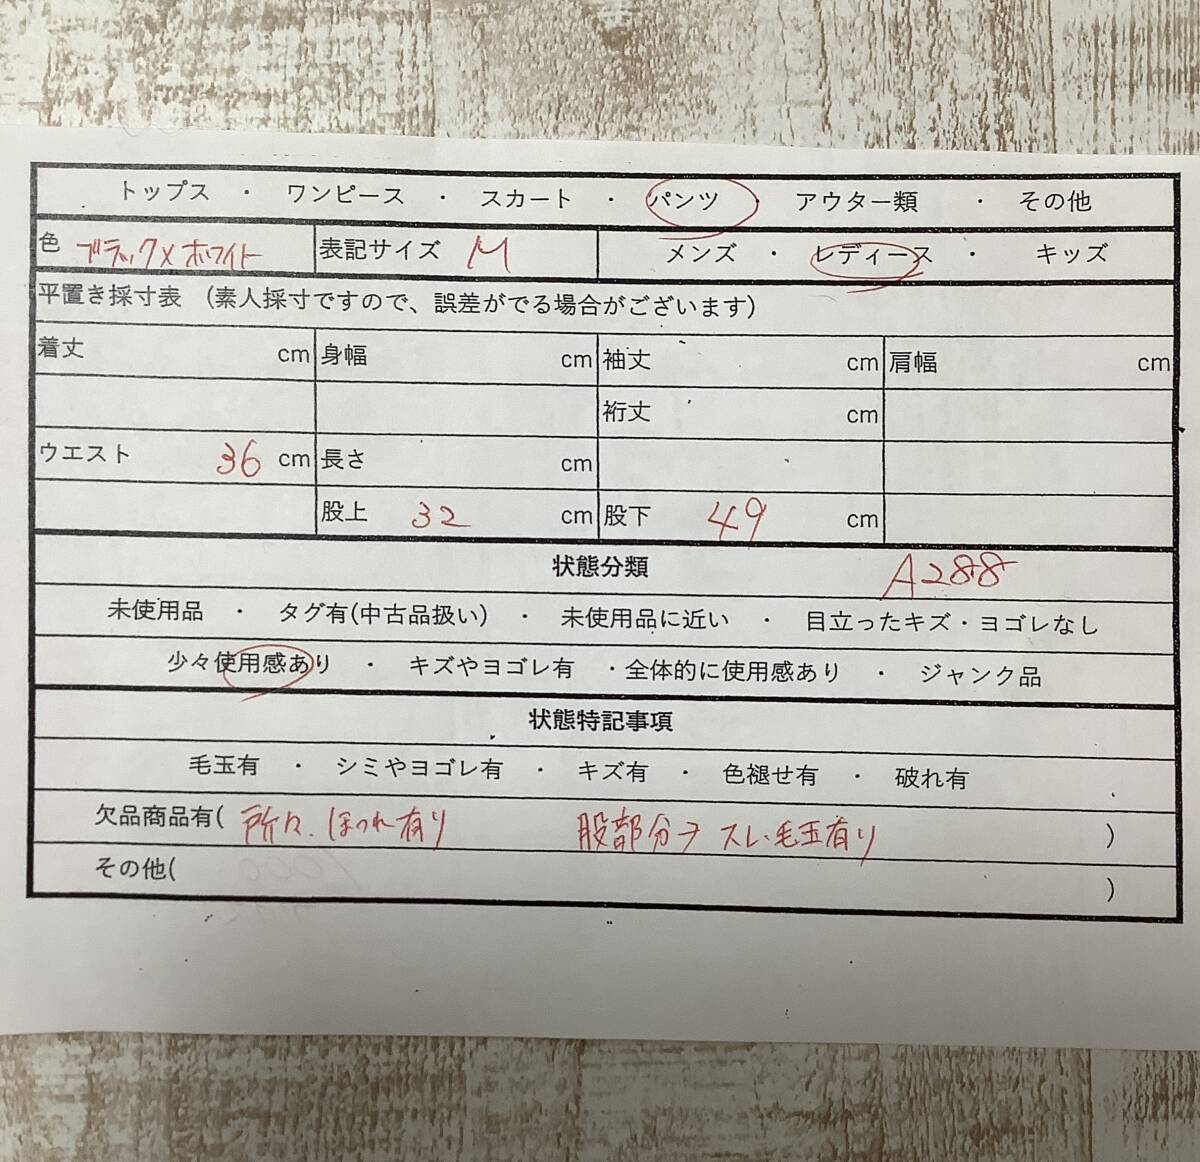 トップス ・ ワンピース ・ スカート ・ パンツ ・ アウター類 ・ その他
色 ブラック×ホワイト 表記サイズ M メンズ ・ レディース ・ キッズ
平置き採寸表 (素人採寸ですので、誤差がでる場合がございます)
着丈 cm 身幅 cm 袖丈 cm 肩幅 cm
裄丈 cm
ウエスト 36 cm 長さ cm
股上 32 cm 股下 49 cm
状態分類 A288
未使用品 ・ タグ有(中古品扱い) ・ 未使用品に近い ・ 目立ったキズ・ヨゴレなし
少々使用感あり ・ キズやヨゴレ有 ・全体的に使用感あり ・ ジャンク品
状態特記事項
毛玉有 ・ シミやヨゴレ有 ・ キズ有 ・ 色褪せ有 ・ 破れ有
欠品商品有( 所々、ほつれ有り 股部分→スレ、毛玉有り )
その他( )